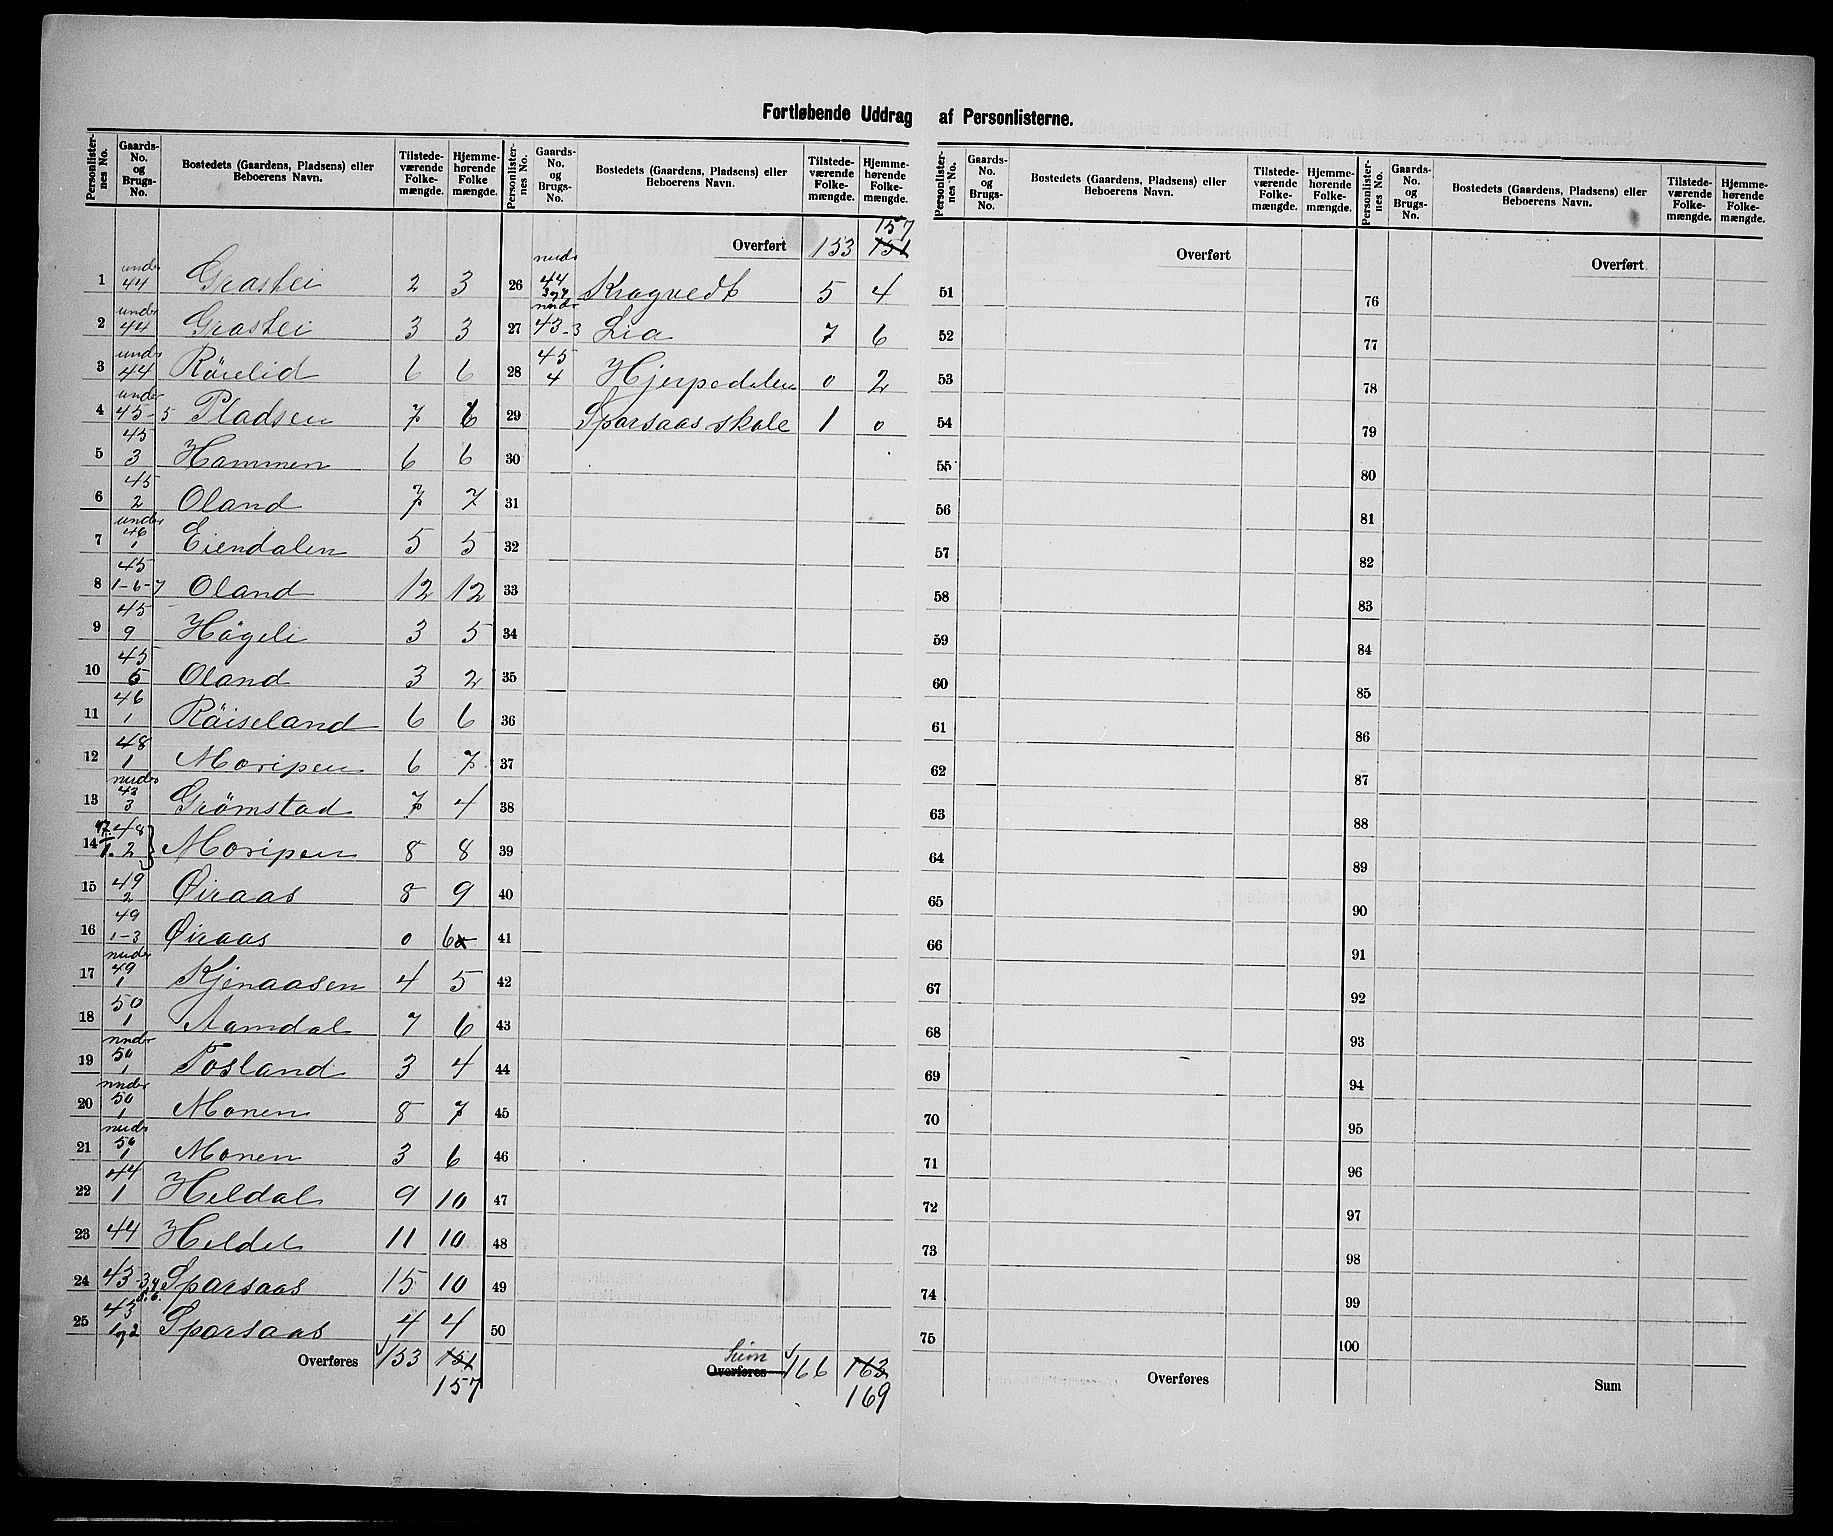 Fortløbende Uddrag af Personlisterne.
Personlister-nes No. | Gaards-No. og Brugs-No. | Bostedets (Gaardens, Pladsens) eller Beboerens Navn. | Tilstede-værende Folke-mængde. | Hjemme-hørende Folke mængde.
1 | under 44 | Graslei | 2 | 3
2 | under 44 | Graslei | 3 | 3
3 | under 44 | Röielid | 6 | 6
4 | under 45-5 | Pladsen | 7 | 6
5 | 45 3 | Hammen | 6 | 6
6 | 45 2 | Oland | 7 | 7
7 | under 46 1 | Eiendalen | 5 | 5
8 | 45 1-6-7 | Oland | 12 | 12
9 | 45 9 | Högeli | 3 | 5
10 | 45 5 | Oland | 3 | 2
11 | 46 1 | Röiseland | 6 | 6
12 | 48 1 | Moripen | 6 | 7
13 | under 43 3 | Grømstad | 7 | 4
14 | 47 1. 48 2 | Moripen | 8 | 8
15 | 49 2 | Øiraas | 8 | 9
16 | 49 1-3 | Øiraas | 0 | 6
17 | under 49 1 | Kjenaasen | 4 | 5
18 | 50 1 | Aamdal | 7 | 6
19 | under 50 1 | Fosland | 3 | 4
20 | under 50 1 | Monen | 8 | 7
21 | under 50 1 | Monen | 3 | 6
22 | 44 1 | Heldal | 9 | 10
23 | 44 | Heldel | 11 | 10
24 | 43-3,4 5.6. | Sparsaas | 15 | 10
25 | 43 1og2 | Sparsaas | 4 | 4
Overføres | 153 | 151
157
Personlister-nes No. | Gaards-No. og Brugs-No. | Bostedets (Gaardens, Pladsens) eller Beboerens Navn. | Tilstede-værende Folke-mængde. | Hjemme-hørende Folke-mængde.
157
Overført | 153 | 151
26 | under 44 3og4 | Kragvedt | 5 | 4
27 | under 43-3 | Lia | 7 | 6
28 | 45 4 | Hjerpedalen | 0 | 2
29 | Sparsaas skole | 1 | 0
30
31
32
33
34
35
36
37
38
39
40
41
42
43
44
45
46
47
48
49
50
Sum
Overføres | 166 | 163
169
Personlister-nes No. | Gaards-No. og Brugs-No. | Bostedets (Gaardens, Pladsens) eller Beboerens Navn. | Tilstede-værende Folke-mængde. | Hjemme-hørende Folke-mængde.
Overført
51
52
53
54
55
56
57
58
59
60
61
62
63
64
65
66
67
68
69
70
71
72
73
74
75
Overføres
Personlister-nes No. | Gaards-No. og Brugs-No. | Bostedets (Gaardens, Pladsens) eller Beboerens Navn. | Tilstede-værende Folke-mængde. | Hjemme-hørende Folke-mængde.
Overført
76
77
78
79
80
81
82
83
84
85
86
87
88
89
90
91
92
93
94
95
96
97
98
99
100
Sum